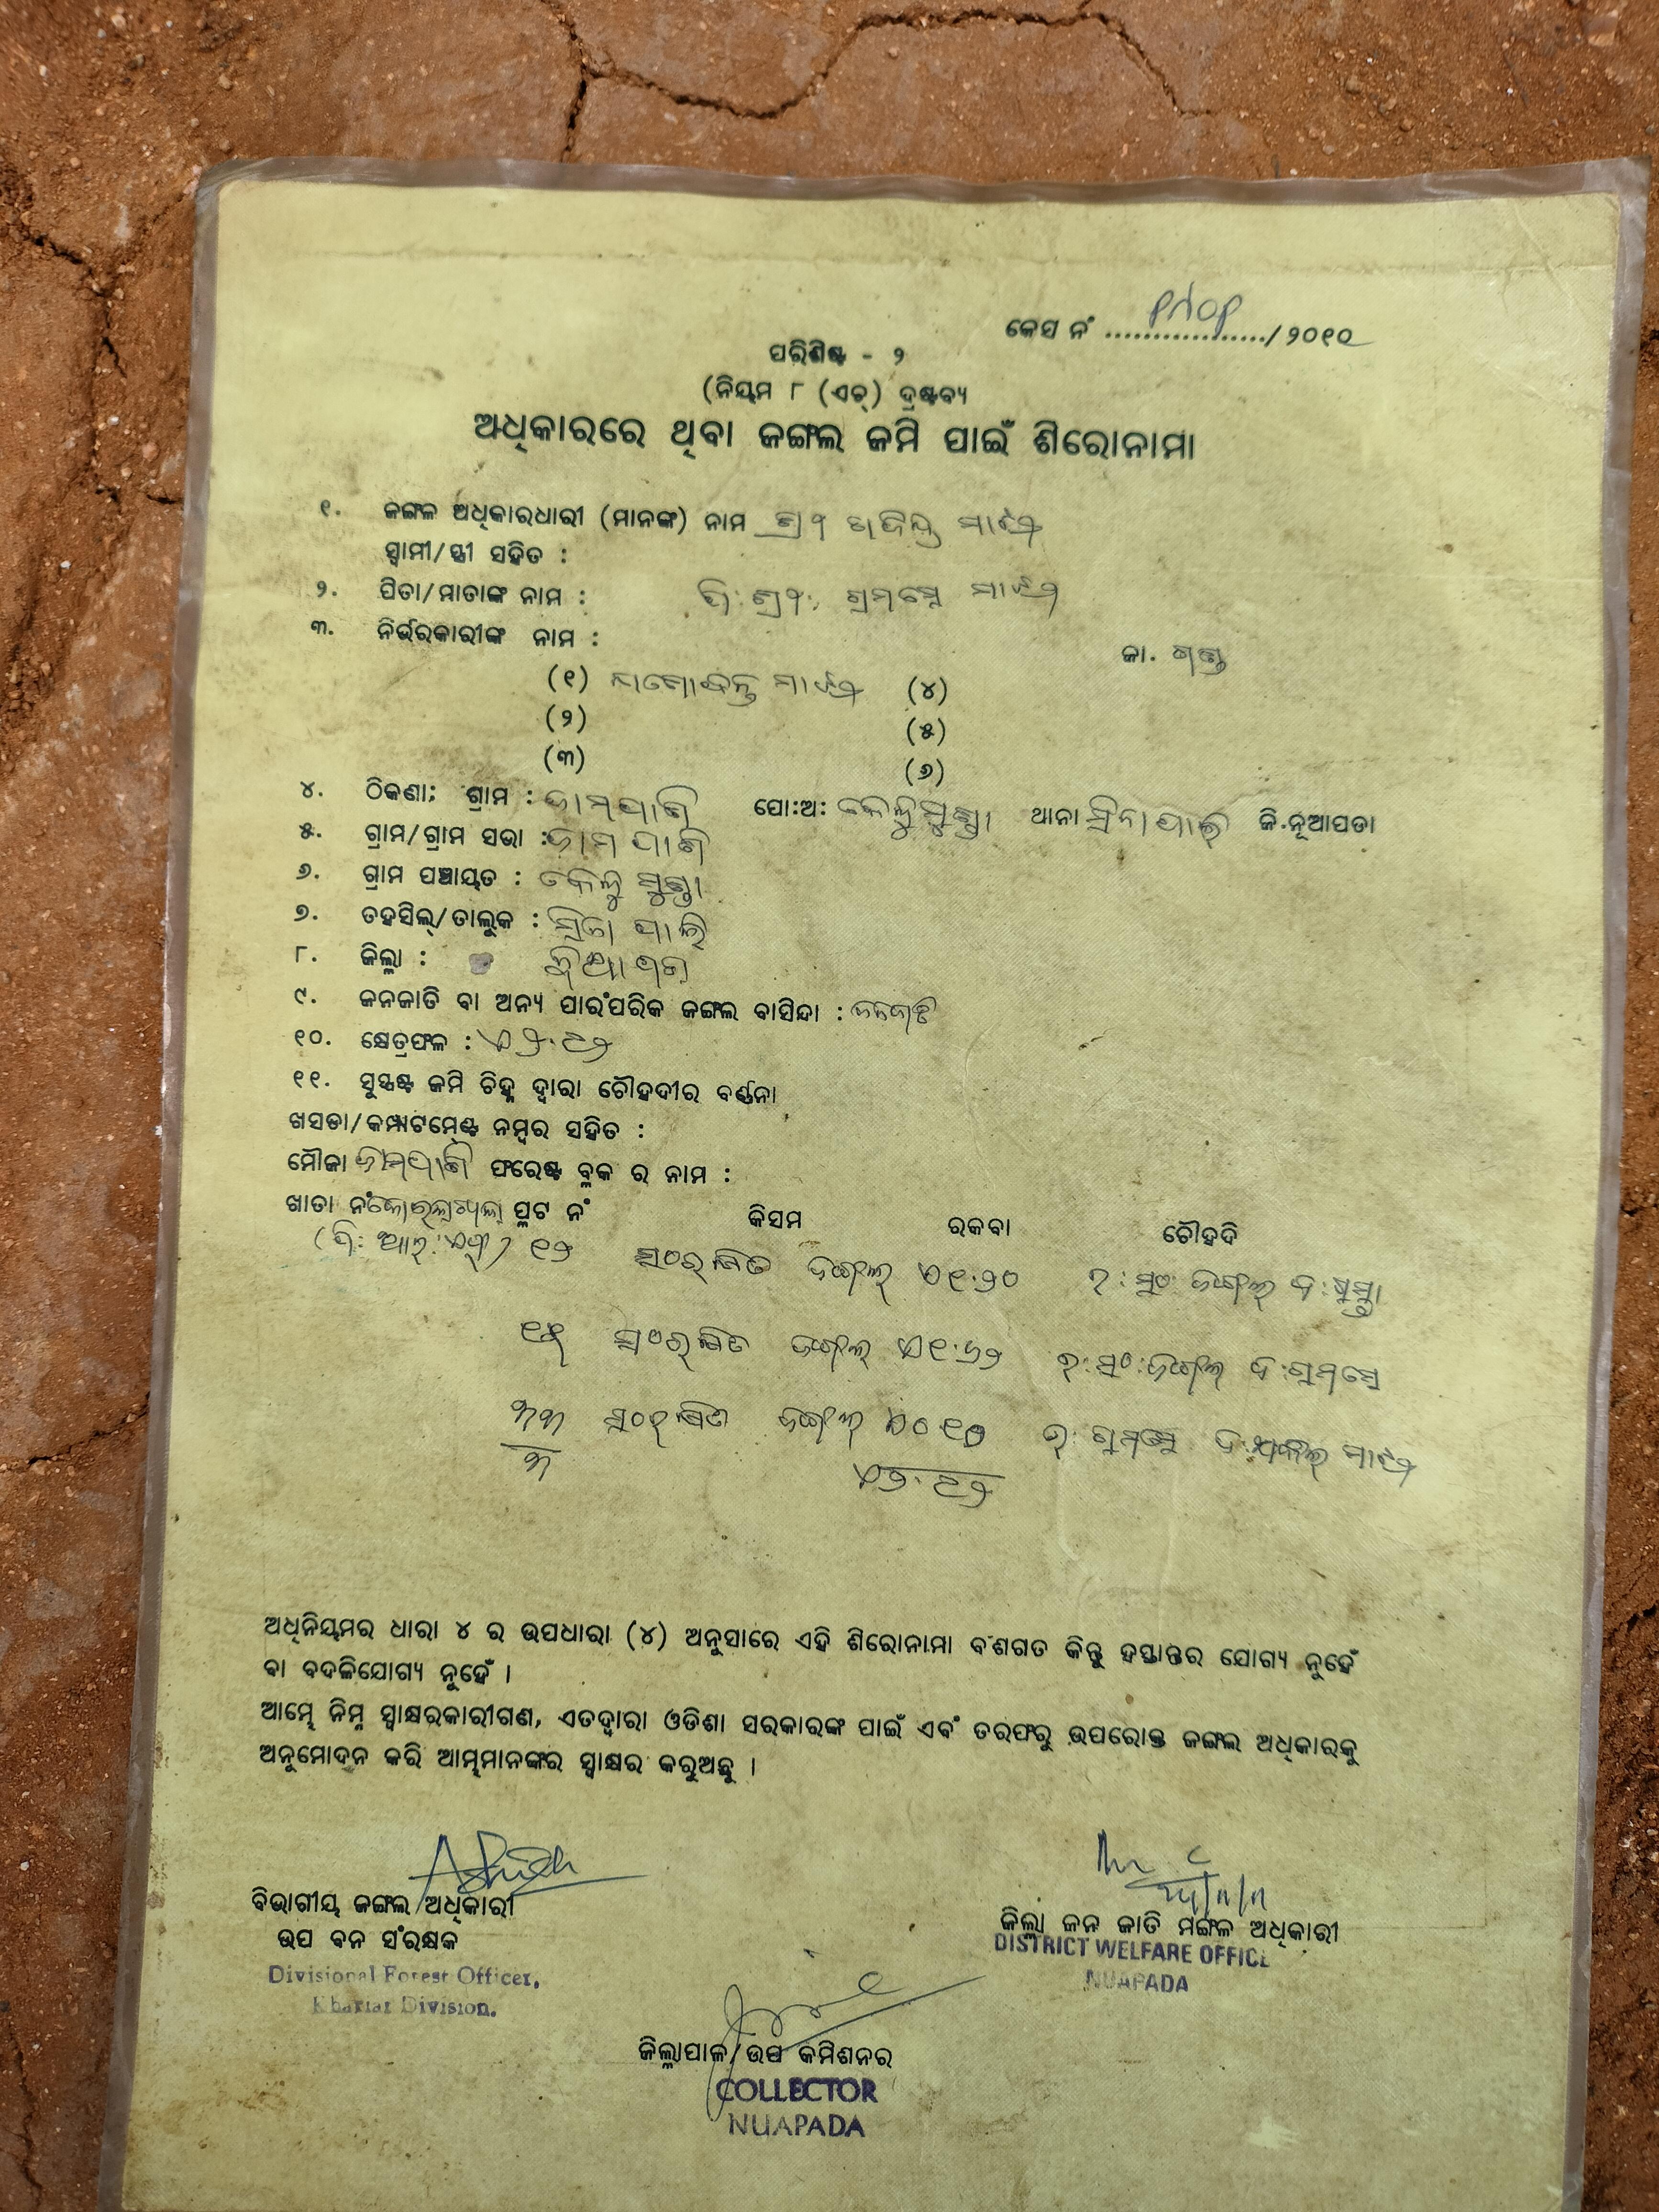 କେସ ନଂ ................./୨୦୧୦
ପରିଶିଷ୍ଟ - ୨
(ନିୟମ ୮ (ଏଚ୍) ଦ୍ରଷ୍ଟବ୍ୟ
ଅଧିକାରରେ ଥିବା ଜଙ୍ଗଲ ଜମି ପାଇଁ ଶିରୋନାମା
୧. ଜଙ୍ଗଳ ଅଧିକାରଧାରୀ (ମାନଙ୍କ) ନାମ ମାଝୀ
ସ୍ୱାମୀ/ସ୍ତ୍ରୀ ସହିତ :
୨. ପିତା/ମାତାଙ୍କ ନାମ : ମାଝୀ
୩. ନିର୍ଭରକାରୀଙ୍କ ନାମ :
ଜା. ଗଣ୍ଡ
(୧) ମାଝୀ (୪)
(୨) (୫)
(୩) (୬)
୪. ଠିକଣା: ଗ୍ରାମ : ଜାମପାନି ପୋ:ଅ: କେନ୍ଦୁମୁଣ୍ଡା ଥାନା ସିନାପାଲି ଜି.ନୂଆପଡା
୫. ଗ୍ରାମ/ଗ୍ରାମ ସଭା : ଜାମପାନି
୬. ଗ୍ରାମ ପଞ୍ଚାୟତ : କେନ୍ଦୁମୁଣ୍ଡା
୭. ତହସିଲ୍/ତାଲୁକ : ସିନାପାଲି
୮. ଜିଲ୍ଲା : ନୂଆପଡା
୯. ଜନଜାତି ବା ଅନ୍ୟ ପାରଂପରିକ ଜଙ୍ଗଲ ବାସିନ୍ଦା : ଜନଜାତି
୧୦. କ୍ଷେତ୍ରଫଳ : ଏ୨.୯୨
୧୧. ସୁସ୍ପଷ୍ଟ ଜମି ଚିହ୍ନ ଦ୍ୱାରା ଚୌହଦୀର ବର୍ଣ୍ଣନା
ଖସଡା/କମ୍ପାଟମେଣ୍ଟ ନମ୍ବର ସହିତ :
ମୌଜା ଜାମପାନି ଫରେଷ୍ଟ ବ୍ଲକ ର ନାମ :
ଖାତା ନଂ ପ୍ଲଟ ନଂ କିସମ ରକବା ଚୌହଦି
୧୨ ସଂରକ୍ଷିତ ଜଙ୍ଗଲ ଏ୧.୨୦ ଉ: ସଂ: ଜଙ୍ଗଲ ଦ:
ସଂରକ୍ଷିତ ଜଙ୍ଗଲ ଏ୧.୬୨ ଉ: ସଂ: ଜଙ୍ଗଲ ଦ:
୩୩ ସଂରକ୍ଷିତ ଜଙ୍ଗଲ ଏ୦.୧୦ ଉ: ଦ: ମାଝୀ
୩ ଏ୨.୯୨
ଅଧିନିୟମର ଧାରା ୪ ର ଉପଧାରା (୪) ଅନୁସାରେ ଏହି ଶିରୋନାମା ବଂଶଗତ କିନ୍ତୁ ହସ୍ତାନ୍ତର ଯୋଗ୍ୟ ନୁହେଁ
ବା ବଦଳିଯୋଗ୍ୟ ନୁହେଁ ।
ଆମ୍ଭେ ନିମ୍ନ ସ୍ୱାକ୍ଷରକାରୀଗଣ, ଏତଦ୍ୱାରା ଓଡିଶା ସରକାରଙ୍କ ପାଇଁ ଏବଂ ତରଫରୁ ଉପରୋକ୍ତ ଜଙ୍ଗଲ ଅଧିକାରକୁ
ଅନୁମୋଦନ କରି ଆମ୍ଭମାନଙ୍କର ସ୍ୱାକ୍ଷର କରୁଅଛୁ ।
ବିଭାଗୀୟ ଜଙ୍ଗଲ ଅଧିକାରୀ
ଉପ ବନ ସଂରକ୍ଷକ
Divisional Forest Officer,
Khariar Division.
ଜିଲ୍ଲା ଜନ ଜାତି ମଙ୍ଗଳ ଅଧିକାରୀ
DISTRICT WELFARE OFFICE
NUAPADA
ଜିଲ୍ଲାପାଳ/ଉପ କମିଶନର
COLLECTOR
NUAPADA